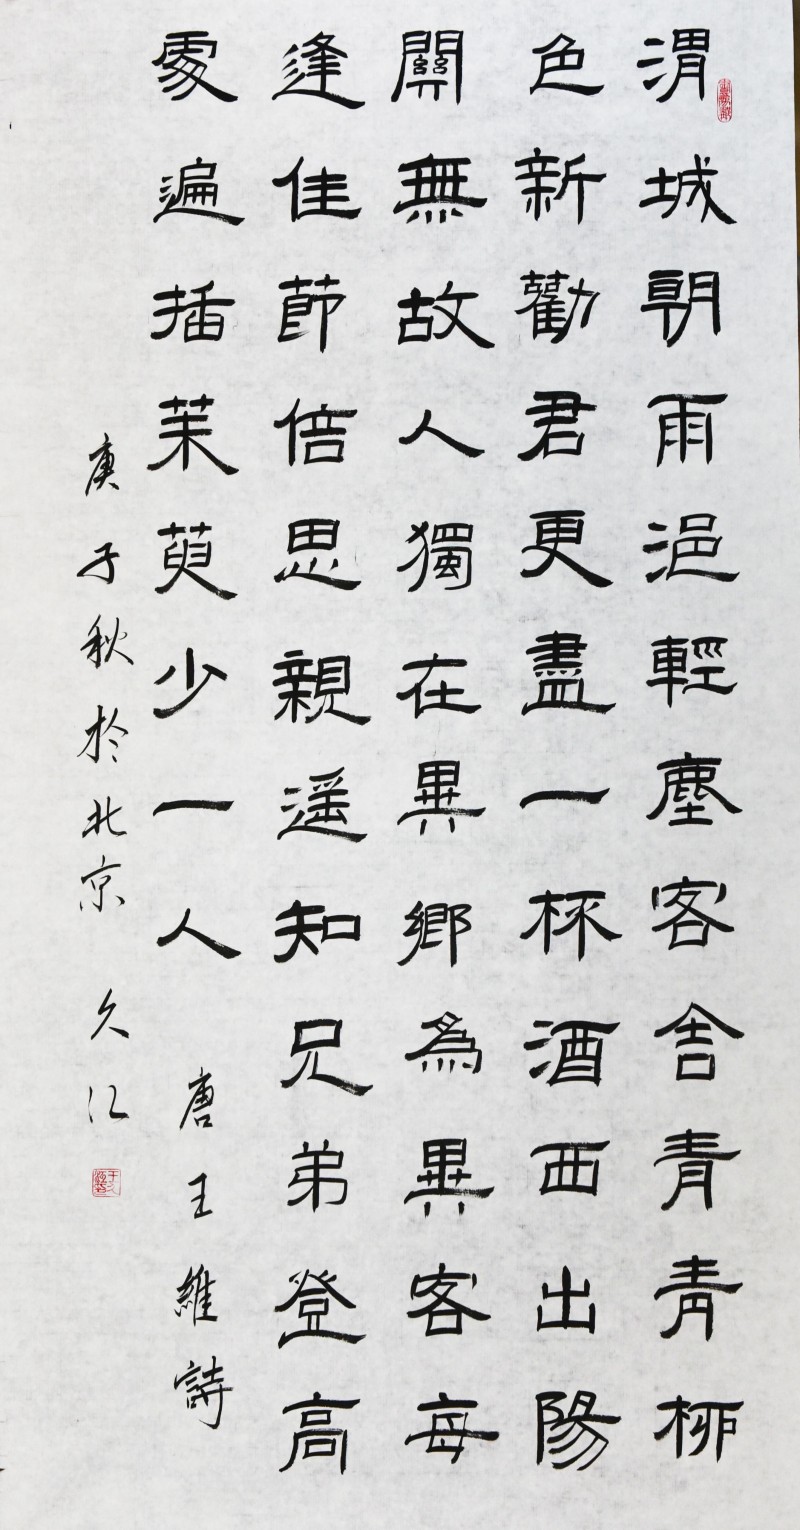 渭城朝雨浥輕塵客舍青青柳
色新勸君更盡一杯酒西出陽
關無故人獨在異鄉為異客每
逢佳節倍思親遥知兄弟登高
處遍插茱萸少一人
唐王維詩
庚子秋於北京 久江